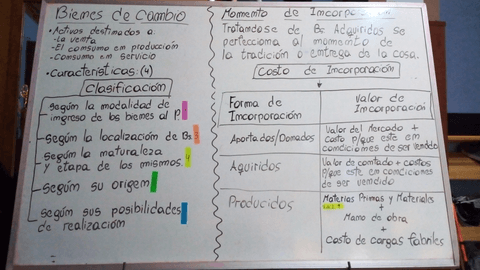 Bienes de Cambio
• Activos destinados a:
- La venta
- El consumo en producción
- Consumo en servicio
• Características: (4)
Clasificación
Según la modalidad de
ingreso de los bienes al P.
Según la localización de Bs
Según la naturaleza
y etapa de los mismos. 4
Según su origen
Según sus posibilidades
de realización
Momento de Incorporación
Tratandose de Bc Adquiridos se
perfecciona al momento de
la tradición o entrega de la cosa.
Costo de Incorporación
Forma de
Incorporación
Valor de
Incorporación
Aportados/Donados
Valor del Mercado +
costo p/que este em
condiciones de ser vendido
Aquiridos
Valor de contado + costos
p/que este em condiciones
de ser vendido
Producidos
Materias Primas y Materiales
+
Mano de obra
+
costo de cargas fabriles